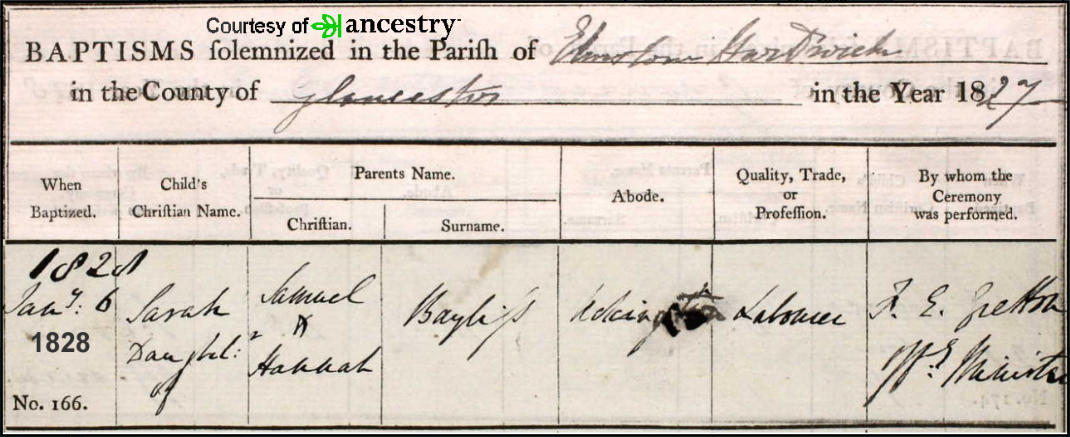 Courtesy of ancestry
BAPTISMS solemnized in the Parish of Elmstone Hardwick
in the County of Gloucester in the Year 1827
When
Baptized.
Child's
Christian Name.
Parents Name.
Christian.
Surname.
Abode.
Quality, Trade,
or
Profession.
By whom the
Ceremony
was performed.
1828
Jany. 6
1828
No. 166.
Sarah
Daught.
of
Samuel
&
Hannah
Bayliss
Labourer
F. E. Gretton
Offg. Minister